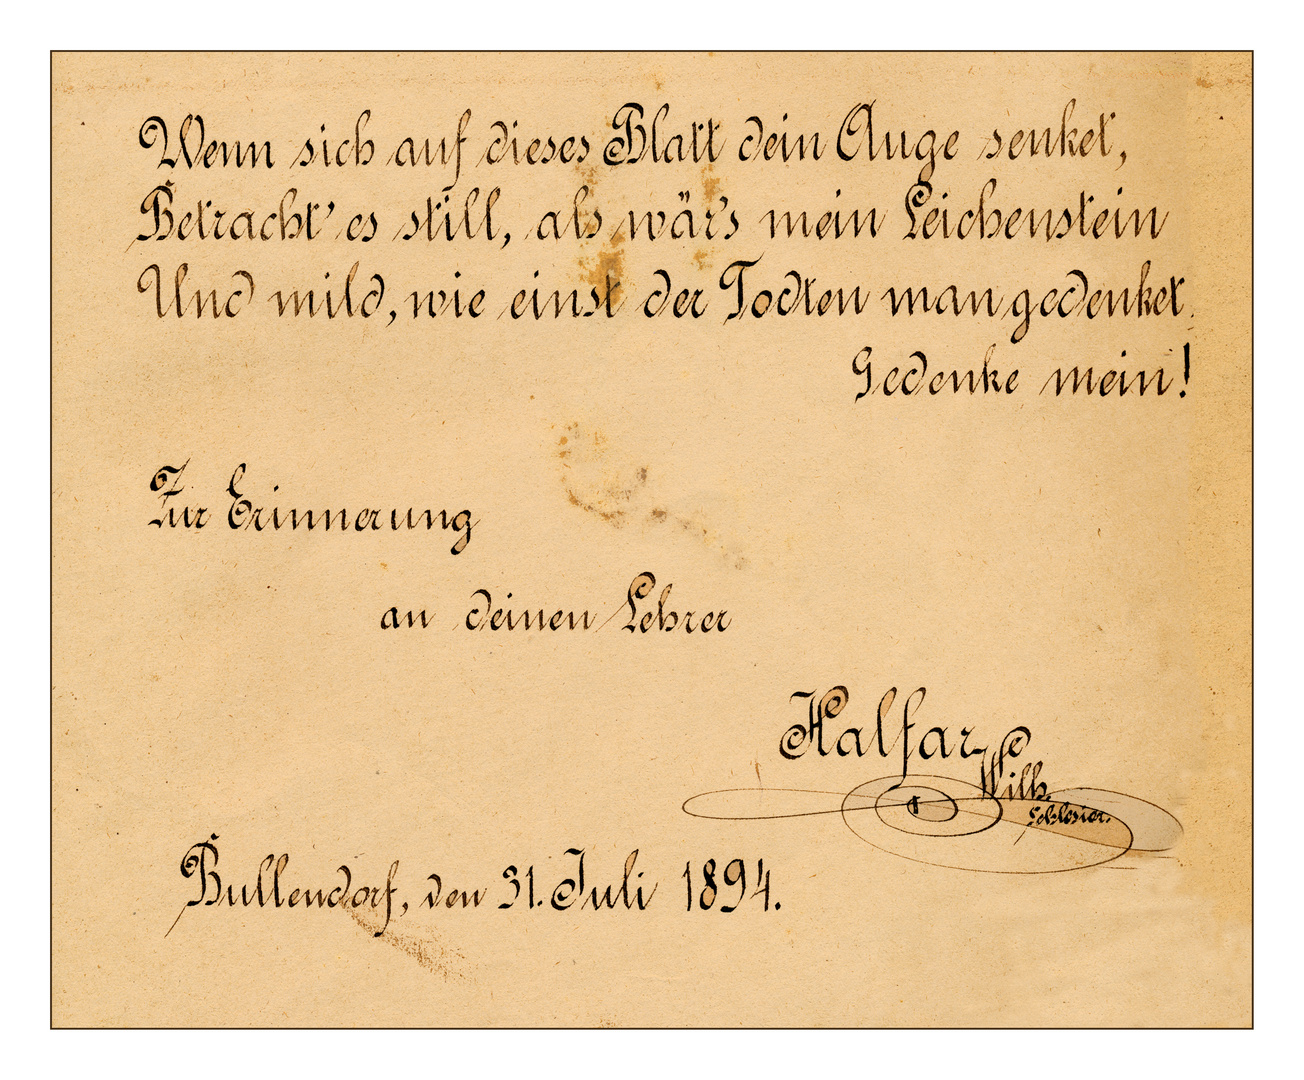 Wenn sich auf dieses Blatt dein Auge senket,
Betracht' es still, als wär's mein Leichenstein
Und mild, wie einst der Todten man gedenket.
Gedenke mein!
Zur Erinnerung
an deinen Lehrer
Halfar
Wilh.
Schlesier.
Bullendorf, den 31. Juli 1894.